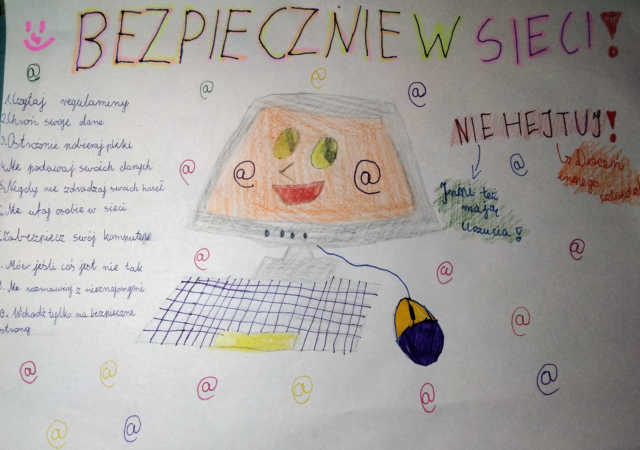 BEZPIECZNIE W SIECI!
1. Czytaj regulaminy
2. Chroń swoje dane
3. Ostrożnie pobieraj pliki
4. Nie podawaj swoich danych
5. Nigdy nie zdradzaj swoich haseł
6. Nie ufaj osobie w sieci
7. Zabezpiecz swój komputer
8. Mów jeśli coś jest nie tak
9. Nie rozmawiaj z nieznajomymi
10. Wchodź tylko na bezpieczne
strony
NIE HEJTUJ!
Inni też
mają
Uczucia!